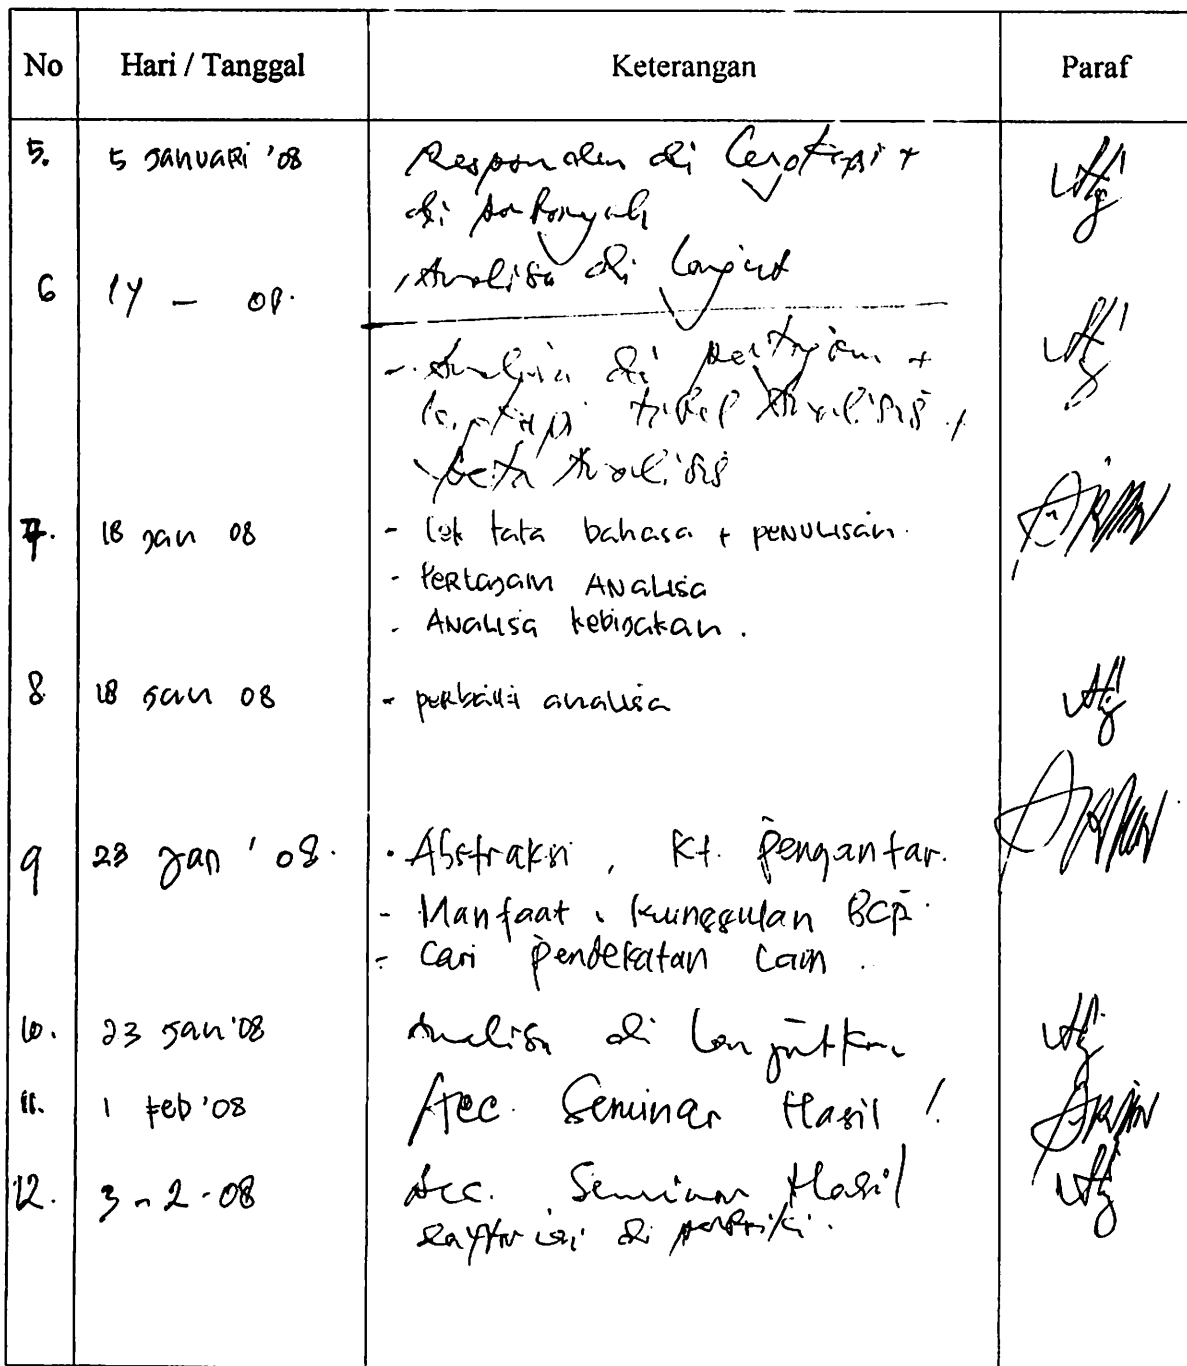 No Hari / Tanggal Keterangan Paraf
5. 5 Januari '08 Responden di lengkapi +
di perbanyak
6 14 - 08. Analisa di lanjut
- Analisa di pertajam +
lengkapi tabel Analisis +
peta Analisis
7. 18 Jan 08 - Cek tata bahasa + penulisan.
- Pertajam Analisa
- Analisa kebijakan.
8 18 Jan 08 - perbaiki analisa
9 23 Jan '08. - Abstraksi, Kt. Pengantar.
- Manfaat, keunggulan BCP.
- Cari pendekatan lain.
10. 23 Jan '08 Analisa di lanjutkan
11. 1 Feb '08 Acc. Seminar Hasil!
12. 3-2-08 Acc. Seminar Hasil
di perbaiki.